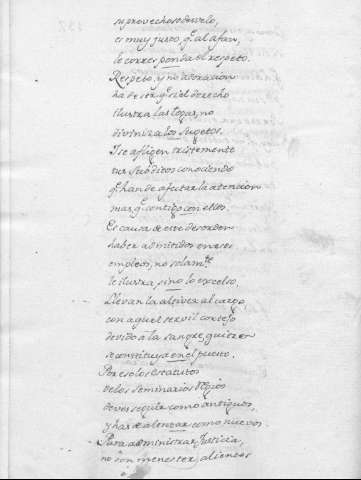 su provechoso desvelo,
es muy justo, q.e al afan,
le corresponda el respeto.
Respeto, y no adoracion
ha de ser, q.e si el derecho
ilustra las Togas, no
diviniza los sugetos.
Y se afligen tristemente
tus subditos conociendo
q.e han de afectar la atencion
mas q.e contigo con ellos.
Es causa de este desorden
haber admitidos en estos
empleos, no solam.te
le ilustra, sino lo excelso.
Llevan la altivez al cargo,
con aquel servil cortejo
devido à la sangre, quieren
se constituya en el puesto.
Por eso los estatutos
de los seminarios Regios
deves seguir como antiguos,
y has de alentar como nuevos.
Para administrar Justicia,
no son menester alientos